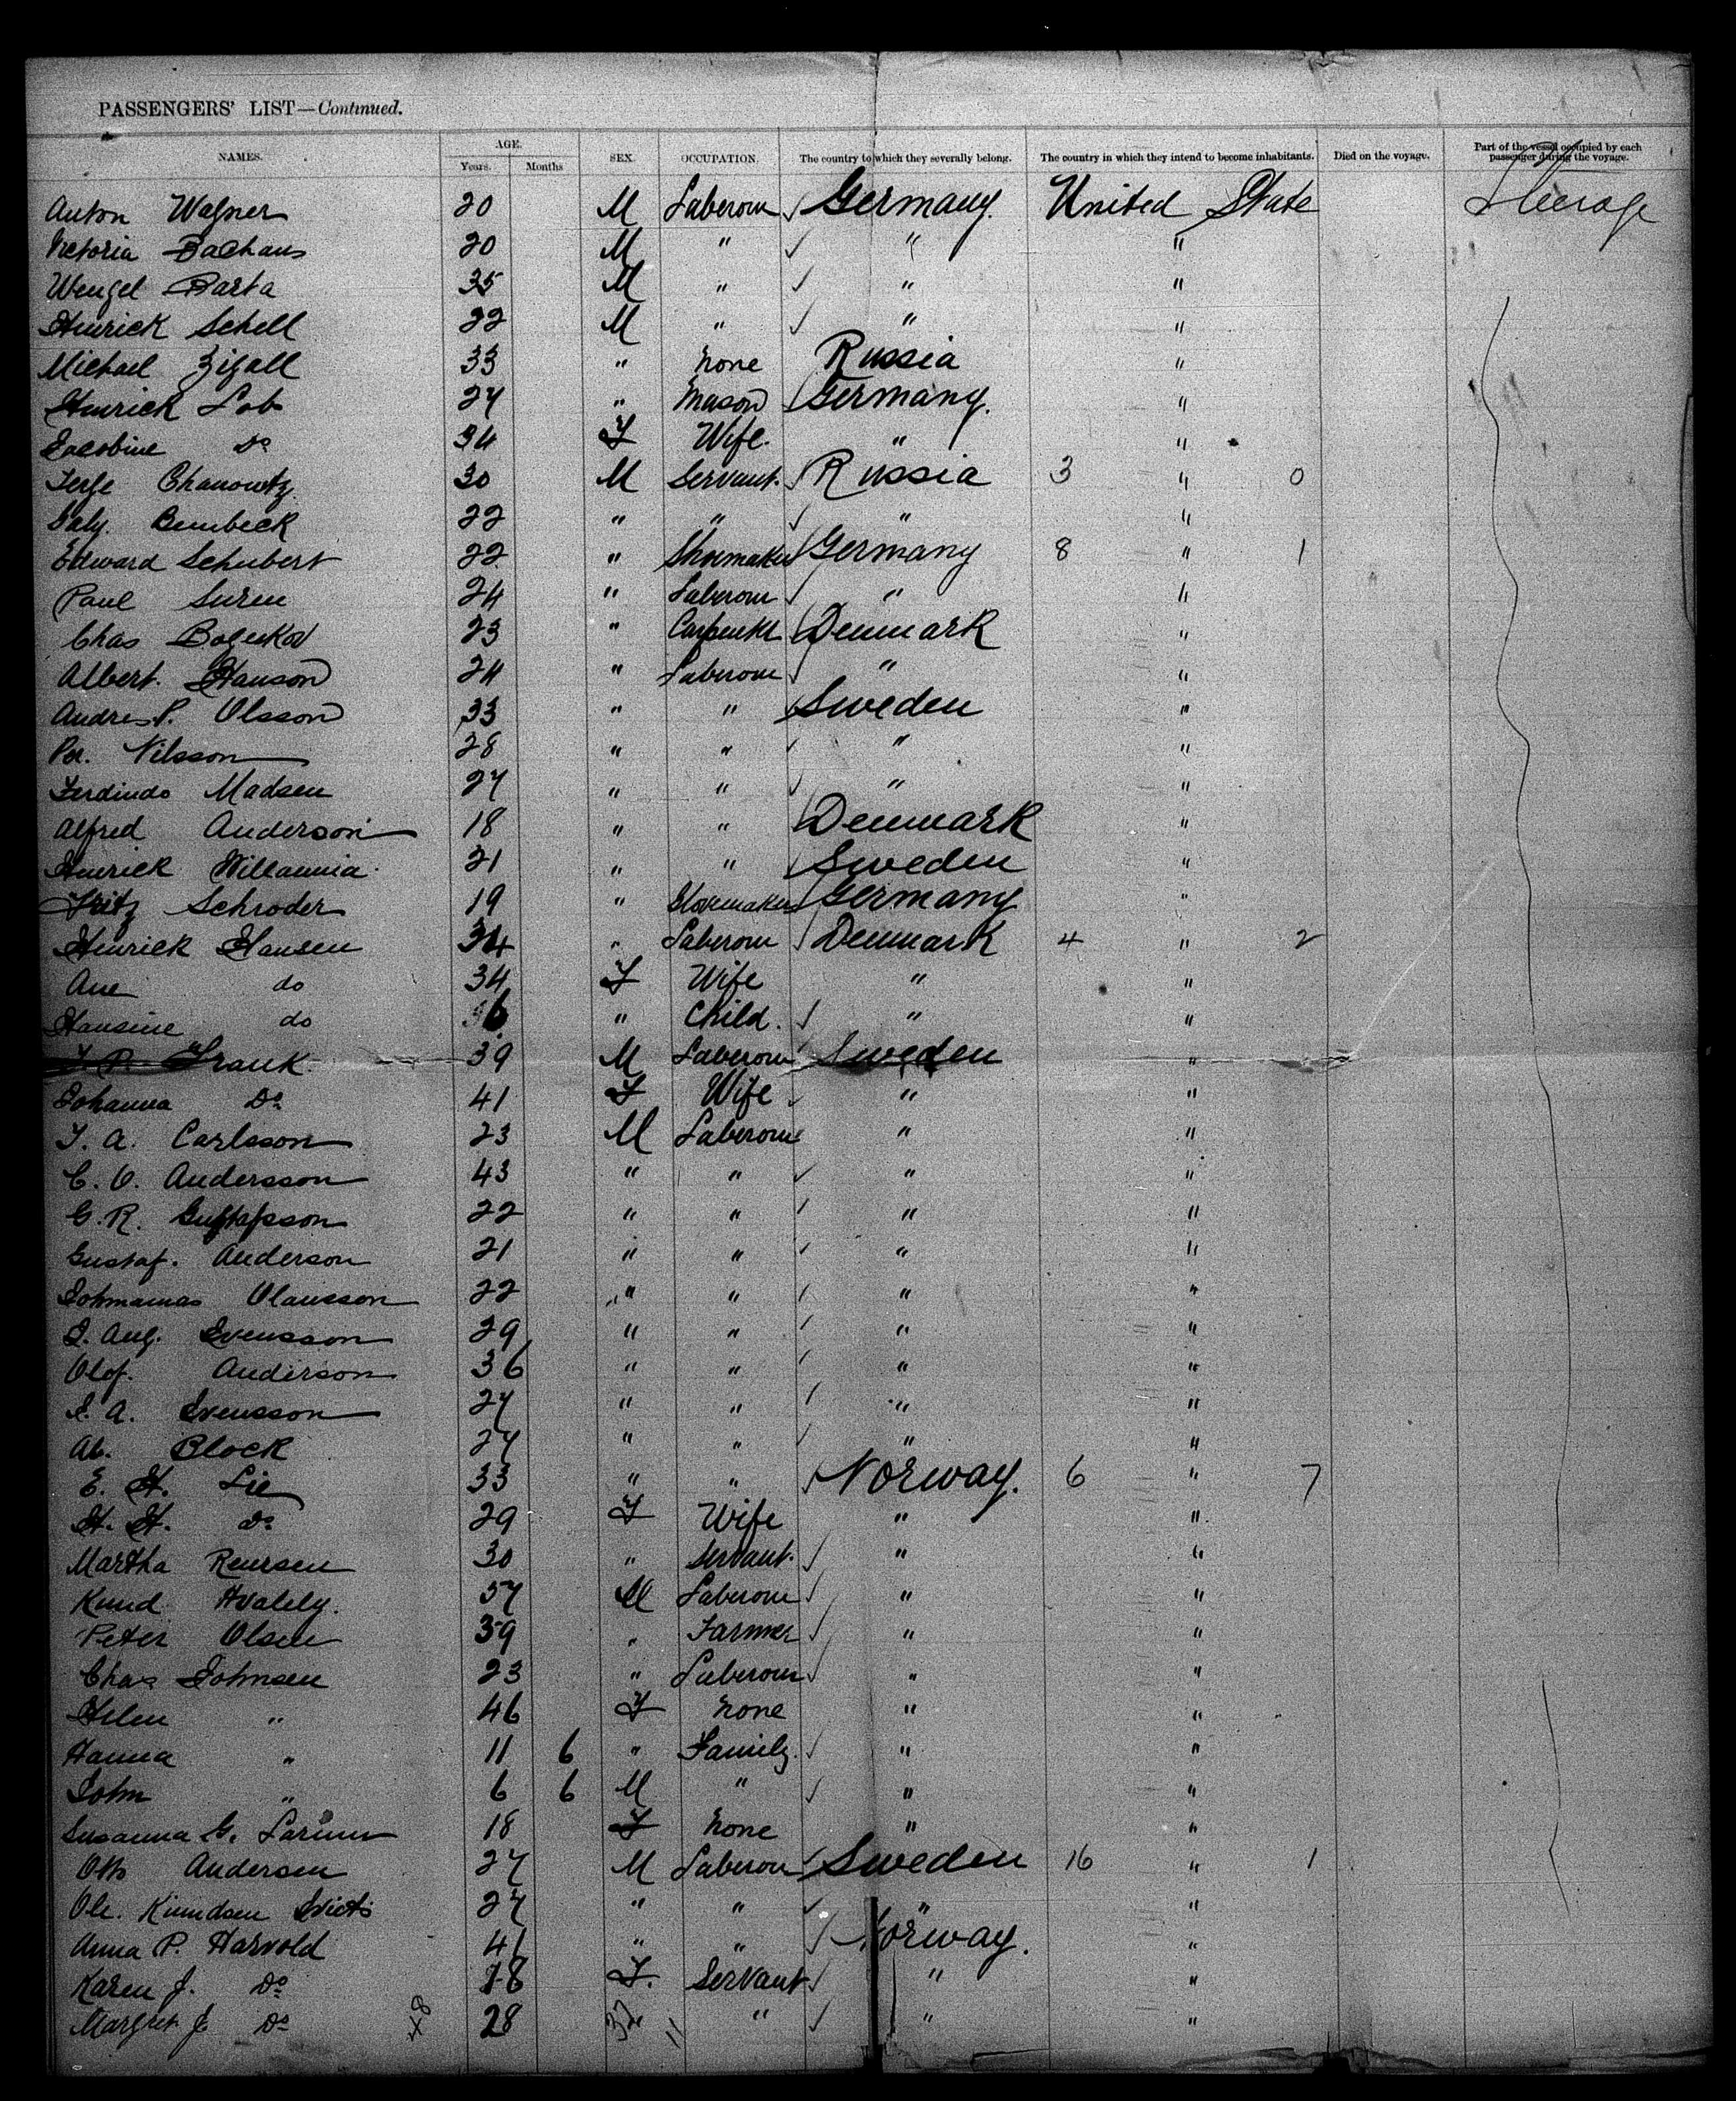 PASSENGERS' LIST—Continued.
NAMES. AGE. Years. Months SEX. OCCUPATION. The country to which they severally belong. The country in which they intend to become inhabitants. Died on the voyage. Part of the vessel occupied by each passenger during the voyage.
Anton Wagner 20 M Laberour ✓ Germany. United State Steerage
Victoria Bachaus 20 M " ✓ " "
Wenzel Barta 35 M " ✓ " "
Hinrick Schell 22 M " ✓ " "
Michael Zigall 33 " None Russia "
Hinrick Lob 27 " Mason Germany. "
Jacobine Do 34 F Wife. " "
Chanowitz 30 M Servant. ✓ Russia 3 " 0
Bembeck 22 " " ✓ " "
Edward Schubert 22 " Shoemaker Germany 8 " 1
Paul Suren 24 " Laberour ✓ " "
Chas 23 " Carpenter Denmark "
Albert. Hanson 24 " Laberour ✓ " "
Andres P. Olsson 33 " " Sweden "
Per. Nilsson 28 " " ✓ " "
Ferdindo Madsen 27 " " ✓ " "
Alfred Anderson 18 " " Denmark "
Hinrick 21 " " ✓ Sweden "
Fritz Schroder 19 " Germany "
Hinrick Hansen 34 " Laberour ✓ Denmark 4 " 2
Ane do 34 F Wife " "
Hansine do 6 " Child. ✓ " "
Frank. 39 M Laberour Sweden "
Johanna Do 41 F Wife ✓ " "
J. A. Carlsson 23 M Laberour " "
C. O. Andersson 43 " " ✓ " "
G. R. Gustafsson 22 " " ✓ " "
Gustaf. Anderson 21 " " ✓ " "
Olausson 22 " " ✓ " "
J. Aug. Svensson 29 " " ✓ " "
Olof. Anderson 36 " " ✓ " "
J. A. Svensson 27 " " ✓ " "
Ab. Block 27 " " ✓ " "
E. H. Lie 33 " " ✓ Norway. 6 " 7
H. H. Do 29 F Wife " "
Martha Reursen 30 " Servant. ✓ " "
Knud 57 M Laberour ✓ " "
Peter Olsen 39 " Farmer ✓ " "
Chas Johnsen 23 " Laberour ✓ " "
Helen " 46 F None " "
Hanna " 11 6 " Family. ✓ " "
John " 6 6 M " ✓ " "
Susanna G. 18 F None " "
Otto Andersen 27 M Laberour ✓ Sweden 16 " 1
Ole. Knudsen 27 " " ✓ " "
Anna P. Harvold 41 " " ✓ Norway. "
Karen J. Do 18 F. Servant ✓ " "
Margret J. Do 48 28 32 11 " ✓ " "